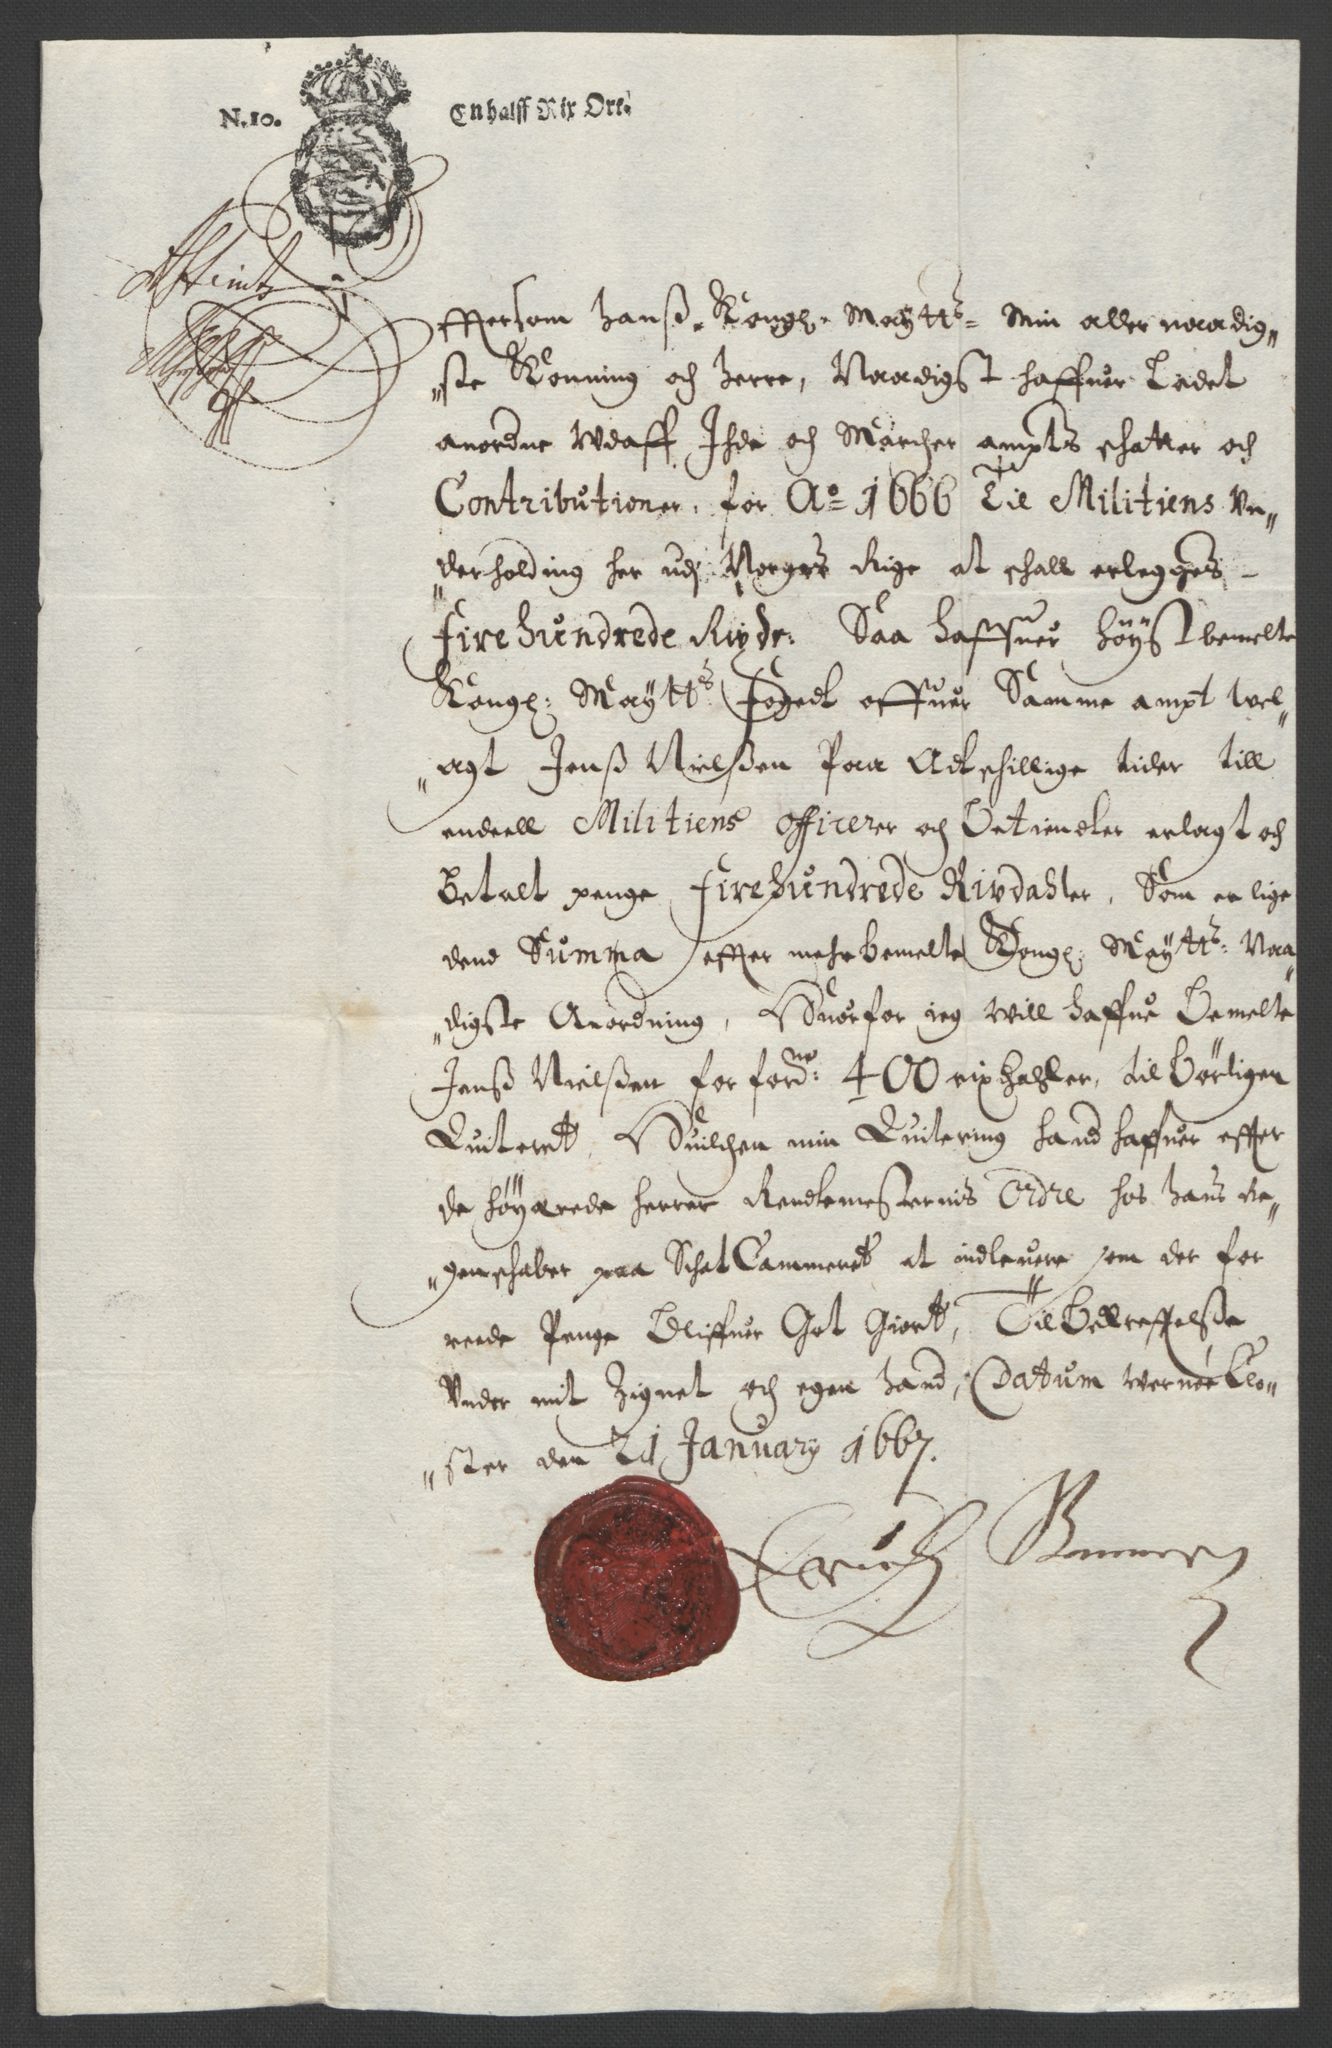 N.10. En halff Rix Ort.
Effersom Hanß Kongl. Maÿtts Min aller naadig„
„ste Konning och Herre, Naadigst haffuer Ladet
anordne Wdaff Ihde och Marcher ampts schatter och
Contributioner, for Ao 1666 Til Militiens Vn„
„derholding her udj Norges Rige at schall erlegges -
Firehundrede Rixdr: Saa haffuer höÿstbemelte
Kongl: Maÿtts Fogedt offuer Samme ampt wel„
„agt Jenß Nielßen Paa Adtschillige tider till
endeell Militiens officerer och Betiendter erlagt och
Betalt penge Firehundrede Rixdahler, Som er lige
dend Summa effter mehrbemelte Kongl: Maÿtts: Naa„
„digste Anordning, Huorfor ieg will haffue Bemelte
Jenß Nielßen for fordne: 400 rixdahler, tilbörligen
Quiterit, Huilchen min Quitering hand haffuer effter
de höÿærede herrer Rendtemesternis Ordre hos hans Re„
„genschaber paa SchatCammerit at indleuere som der for
reede Penge Bliffuer Got Giort, Til Bekreffelße
Vnder mit Zignet och egen hand, Datum Werne Clo„
„ster den 21 January 1667.